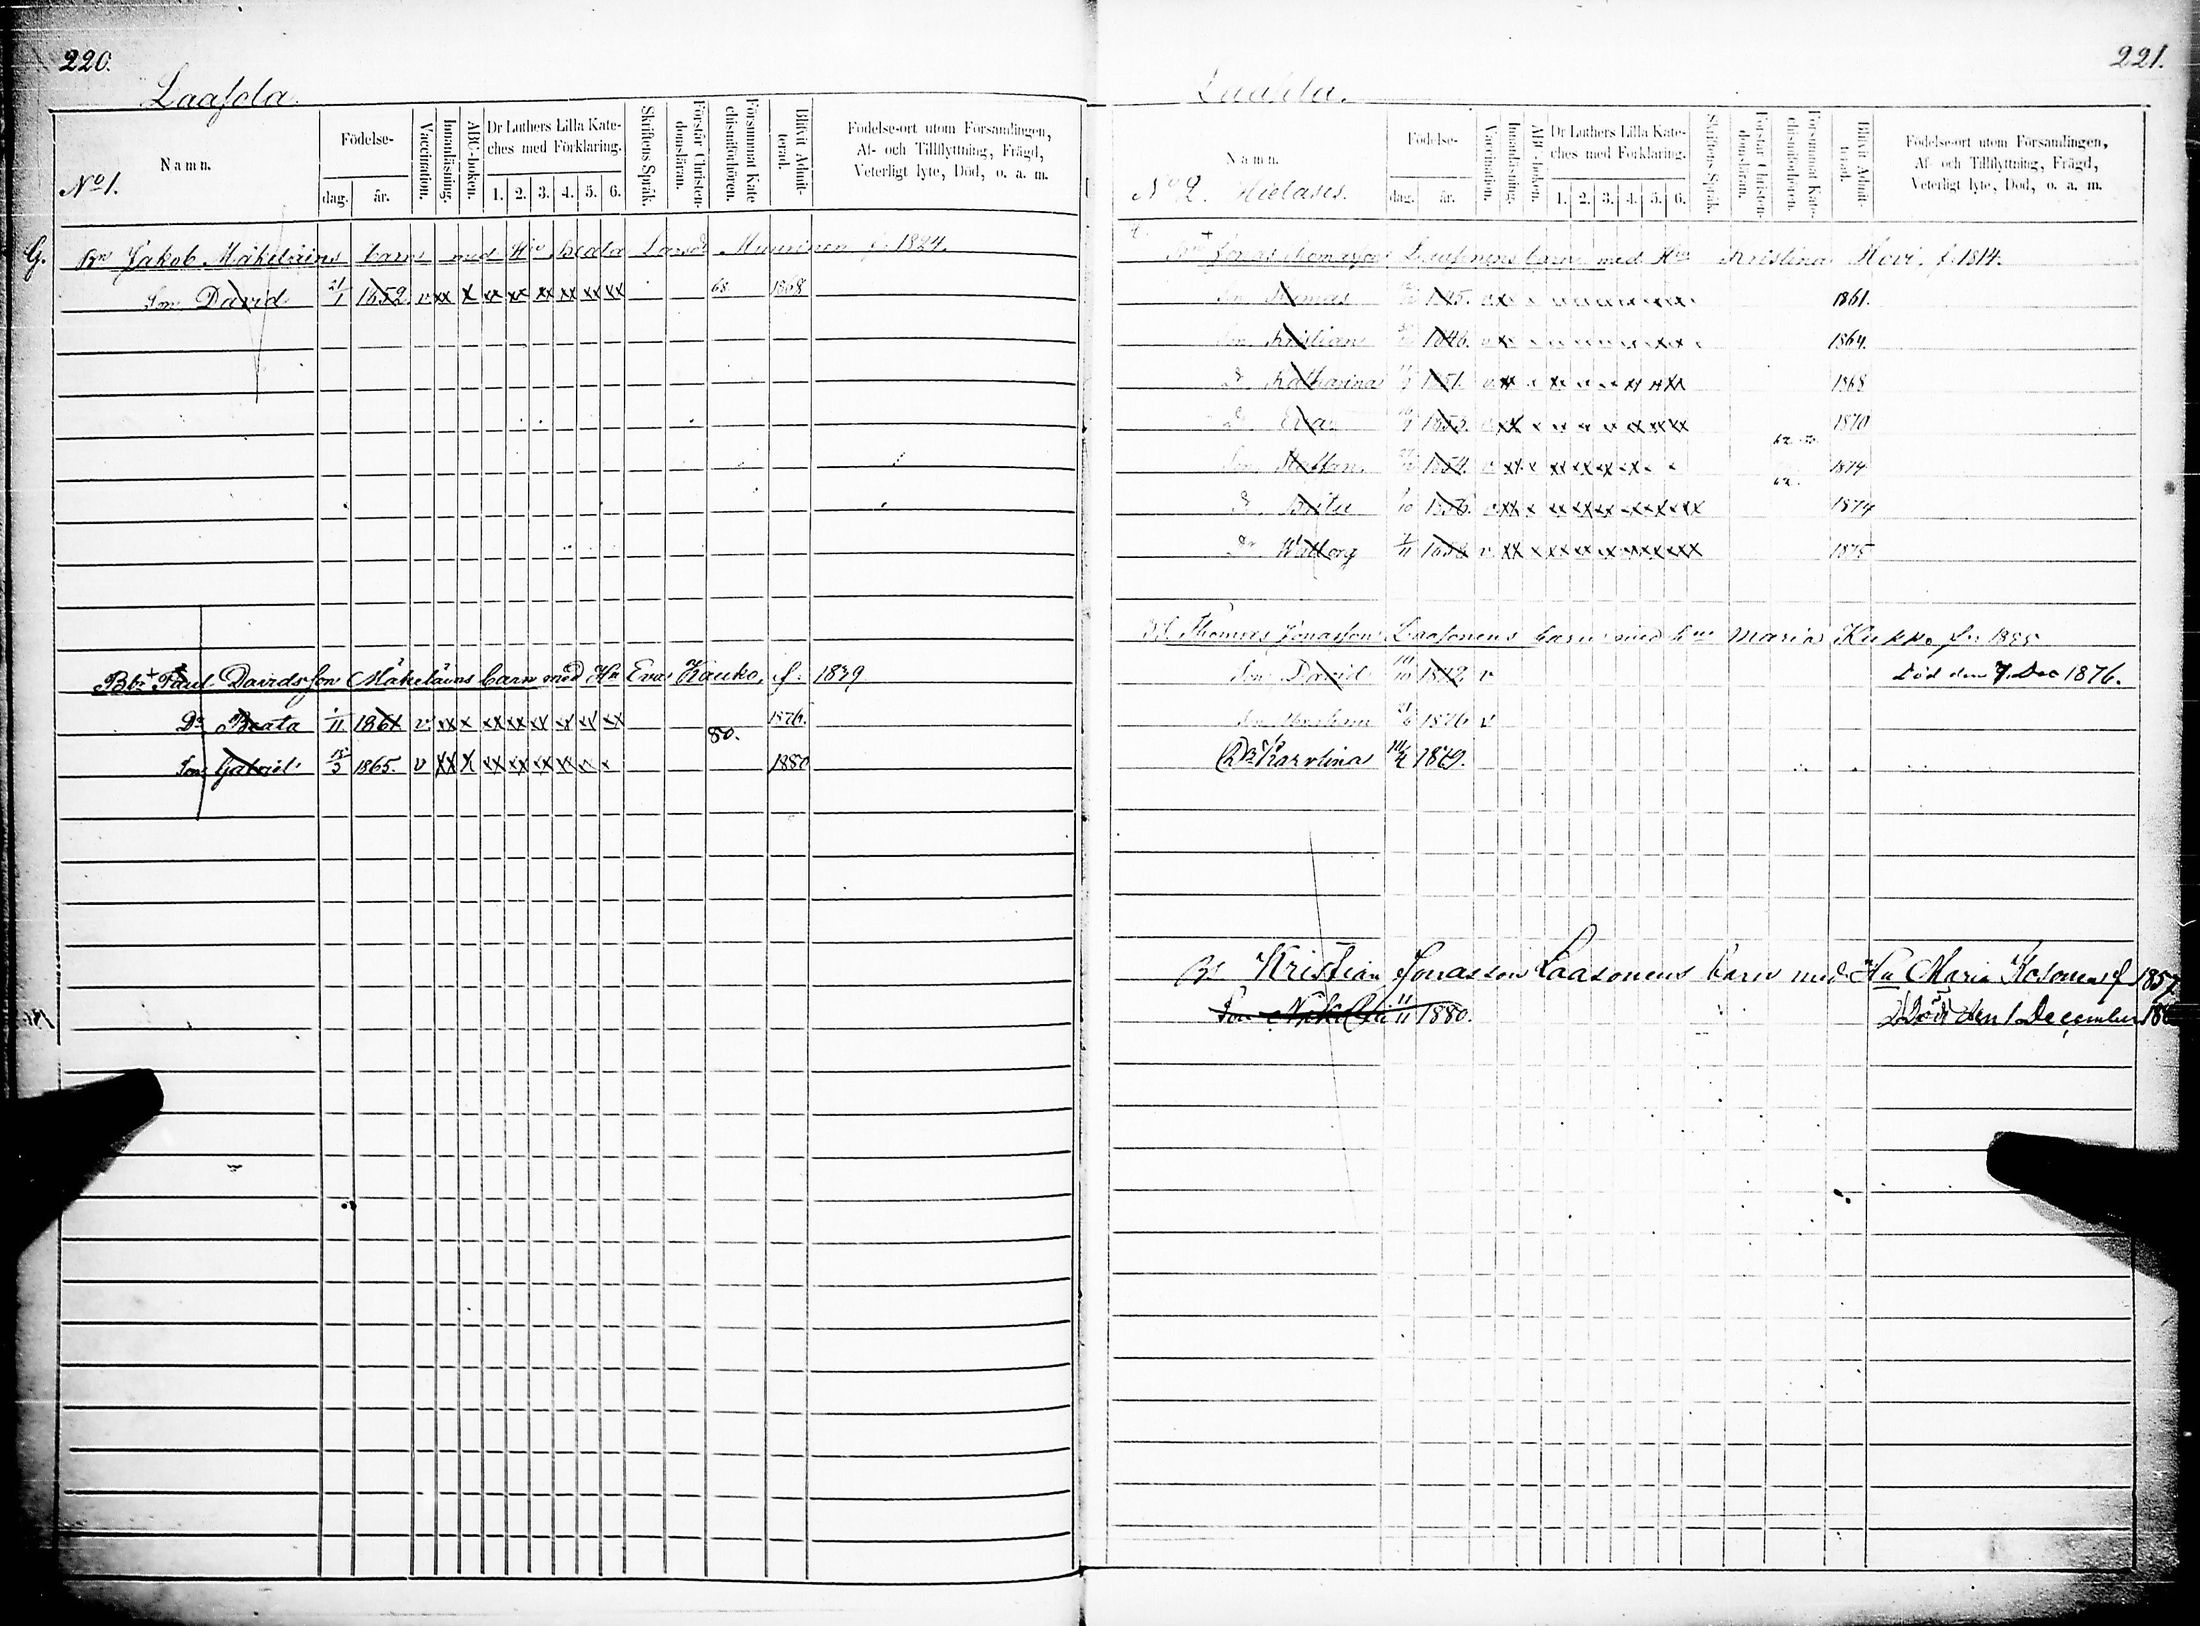 220.
Laasola.
Namn.
No 1.
Födelse-
dag. år.
Vaccination.
Innanläsning.
ABC-boken.
Dr Luthers Lilla Kate-
ches med Förklaring.
1. 2. 3. 4. 5. 6.
Skriftens Språk.
Förstår Christen-
domsläran.
Försummat Kate
chismiförhören.
Blifvit Admit-
terad.
Födelse-ort utom Församlingen,
Af- och Tillflyttning, Frägd,
Veterligt lyte, Död, o. a. m.
G. Bn Jakob Mäkeläins barn med Hu Beata Larsdr Muurinen f. 1824.
Son David 21/1 1852 v xx x xx xx xx xx xx xx 68 1868
Bbr Paul Davidsson Mäkeläins barn med Hu Eva Kauko, f. 1839
Dr Beata 1/11 1861 v xx x xx xx xx xx xx xx 1876.
80.
Son Gabriel 15/3 1865. v xx x xx xx xx xx x x 1880
221.
Laasola.
Namn.
No 2. Hielases.
Födelse-
dag. år.
Vaccination.
Innanläsning.
ABC-boken.
Dr Luthers Lilla Kate-
ches med Förklaring.
1. 2. 3. 4. 5. 6.
Skriftens Språk.
Förstår Christen-
domsläran.
Försummat Kate-
chismiförhören.
Blifvit Admit-
terad.
Födelse-ort utom Församlingen,
Af- och Tillflyttning, Frägd,
Veterligt lyte, Död, o. a. m.
Bn Jonas Thomasson Laasonens barn med Hu Kristina Hovi. f. 1814.
Son Thomas 1845. 1861.
Son Kristian 1846. 1864.
Dr Katharina 1851. 1868
Dr Eva 1853. 1870
Son Staffan 1854. 1874
Dr Brita 1856. 1874
Dr Walborg 1858 1875
Thomas Jonasson Laasonens barn med hu Maria Kukko f. 1855
Son David 1872. v Död den 7. Dec 1876.
Son Abraham 1876 v
Dr Karolina 1879.
Br Kristian Jonasson Laasonens barn med Hu Maria Kosonen f 1857
Son Nikolai 11/11 1880. Död den 1 December